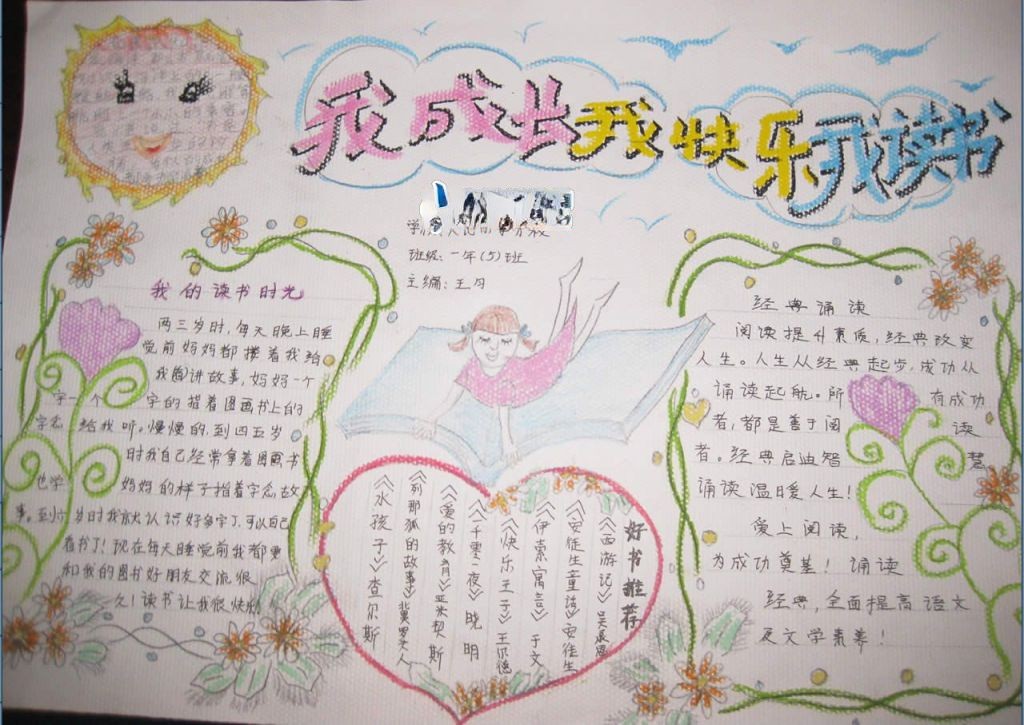 我成长我快乐我读书
班级：一年(5)班
主编：王月
我的读书时光
两三岁时，每天晚上睡
觉前妈妈都搂着我给
我讲故事，妈妈一个
字一个字的指着图画书上的
字念给我听。慢慢的，到四五岁
时我自己经常拿着图画书
也学妈妈的样子指着字念故
事。到六岁时我就认识好多字了，可以自己
看书了！现在每天睡觉前我都要
和我的图书好朋友交流很
久！读书让我很快乐
好书推荐
《西游记》吴承恩
《安徒生童话》安徒生
《伊索寓言》于文
《快乐王子》王尔德
《一千零一夜》晓明
《爱的教育》亚米契斯
《列那狐的故事》
《水孩子》查尔斯
经典诵读
阅读提升素质，经典改变
人生。人生从经典起步，成功从
诵读起航。所有成功
者，都是善于阅读
者。经典启迪智慧
诵读温暖人生！
爱上阅读，
为成功奠基！诵读
经典，全面提高语文
及文学素养！